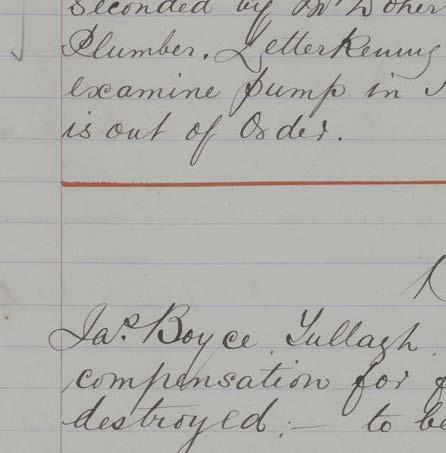 seconded by Mr Doher
Plumber. Letterkenny
examine pump in
is out of Order.
Jas. Boyce Tullagh
compensation for f
destroyed :- to be